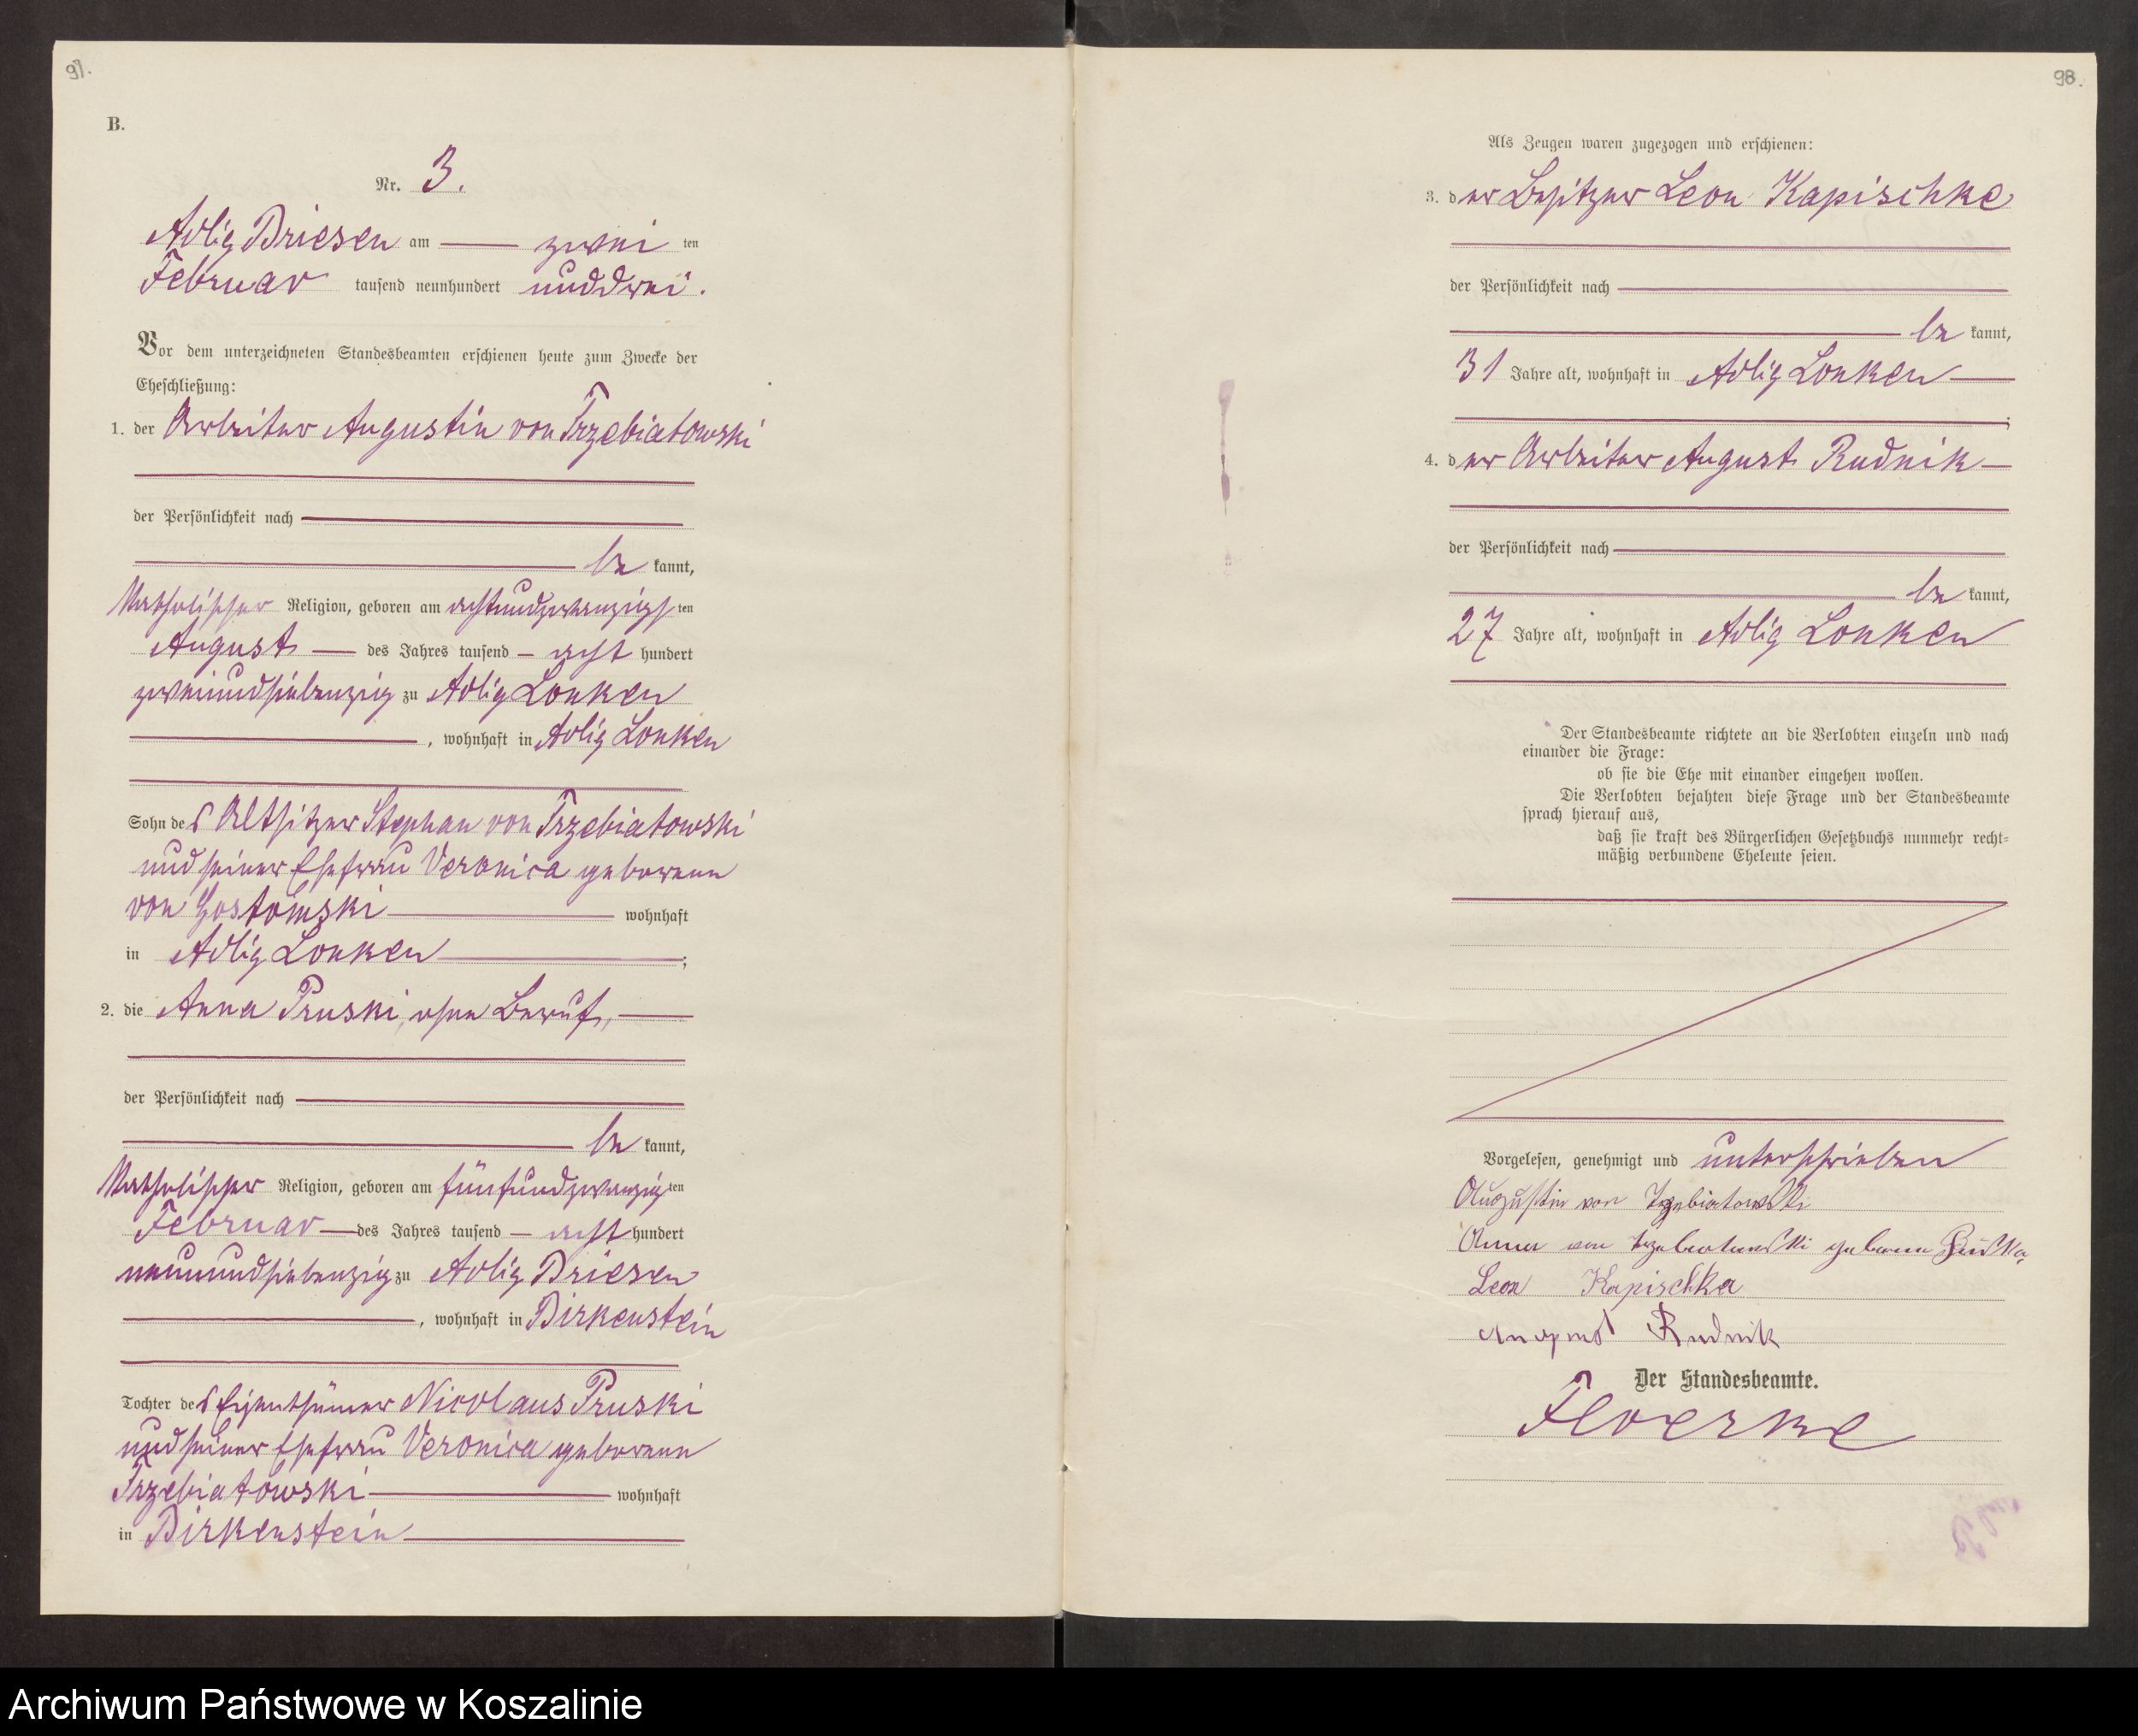 97.
B.
Nr. 3.
Adlig Briesen am zwei ten
Februar tausend neunhundert und drei.
Vor dem unterzeichneten Standesbeamten erschienen heute zum Zwecke der
Eheschließung:
1. der Arbeiter Augustin von Trzebiatowski
der Persönlichkeit nach
be kannt,
katholischer Religion, geboren am achtundzwanzigs ten
August des Jahres tausend acht hundert
zweiundsiebenzig zu Adlig Lonken
, wohnhaft in Adlig Lonken
Sohn des Altsitzer Stephan von Trzebiatowski
und seiner Ehefrau Veronica geborenen
von Gostomski wohnhaft
in Adlig Lonken ;
2. die Anna Pruski, ohne Beruf,
der Persönlichkeit nach
be kannt,
katholischer Religion, geboren am fünfundzwanzig ten
Februar des Jahres tausend acht hundert
neunundsiebenzig zu Adlig Briesen
, wohnhaft in Birkenstein
Tochter des Eigenthümer Nicolaus Pruski
und seiner Ehefrau Veronica geborenen
Trzebiatowski wohnhaft
in Birkenstein
98.
Als Zeugen waren zugezogen und erschienen:
3. der Besitzer Leon Kapischke
der Persönlichkeit nach
be kannt,
31 Jahre alt, wohnhaft in Adlig Lonken
;
4. der Arbeiter August Rudnik
der Persönlichkeit nach
be kannt,
27 Jahre alt, wohnhaft in Adlig Lonken
Der Standesbeamte richtete an die Verlobten einzeln und nach
einander die Frage:
ob sie die Ehe mit einander eingehen wollen.
Die Verlobten bejahten diese Frage und der Standesbeamte
sprach hierauf aus,
daß sie kraft des Bürgerlichen Gesetzbuchs nunmehr recht-
mäßig verbundene Eheleute seien.
Vorgelesen, genehmigt und unterschrieben
Augustin von Trzebiatowski
Anna von Trzebiatowski geborene
Leon Kapischka
August Rudnik
Der Standesbeamte.
Floerke
Archiwum Państwowe w Koszalinie